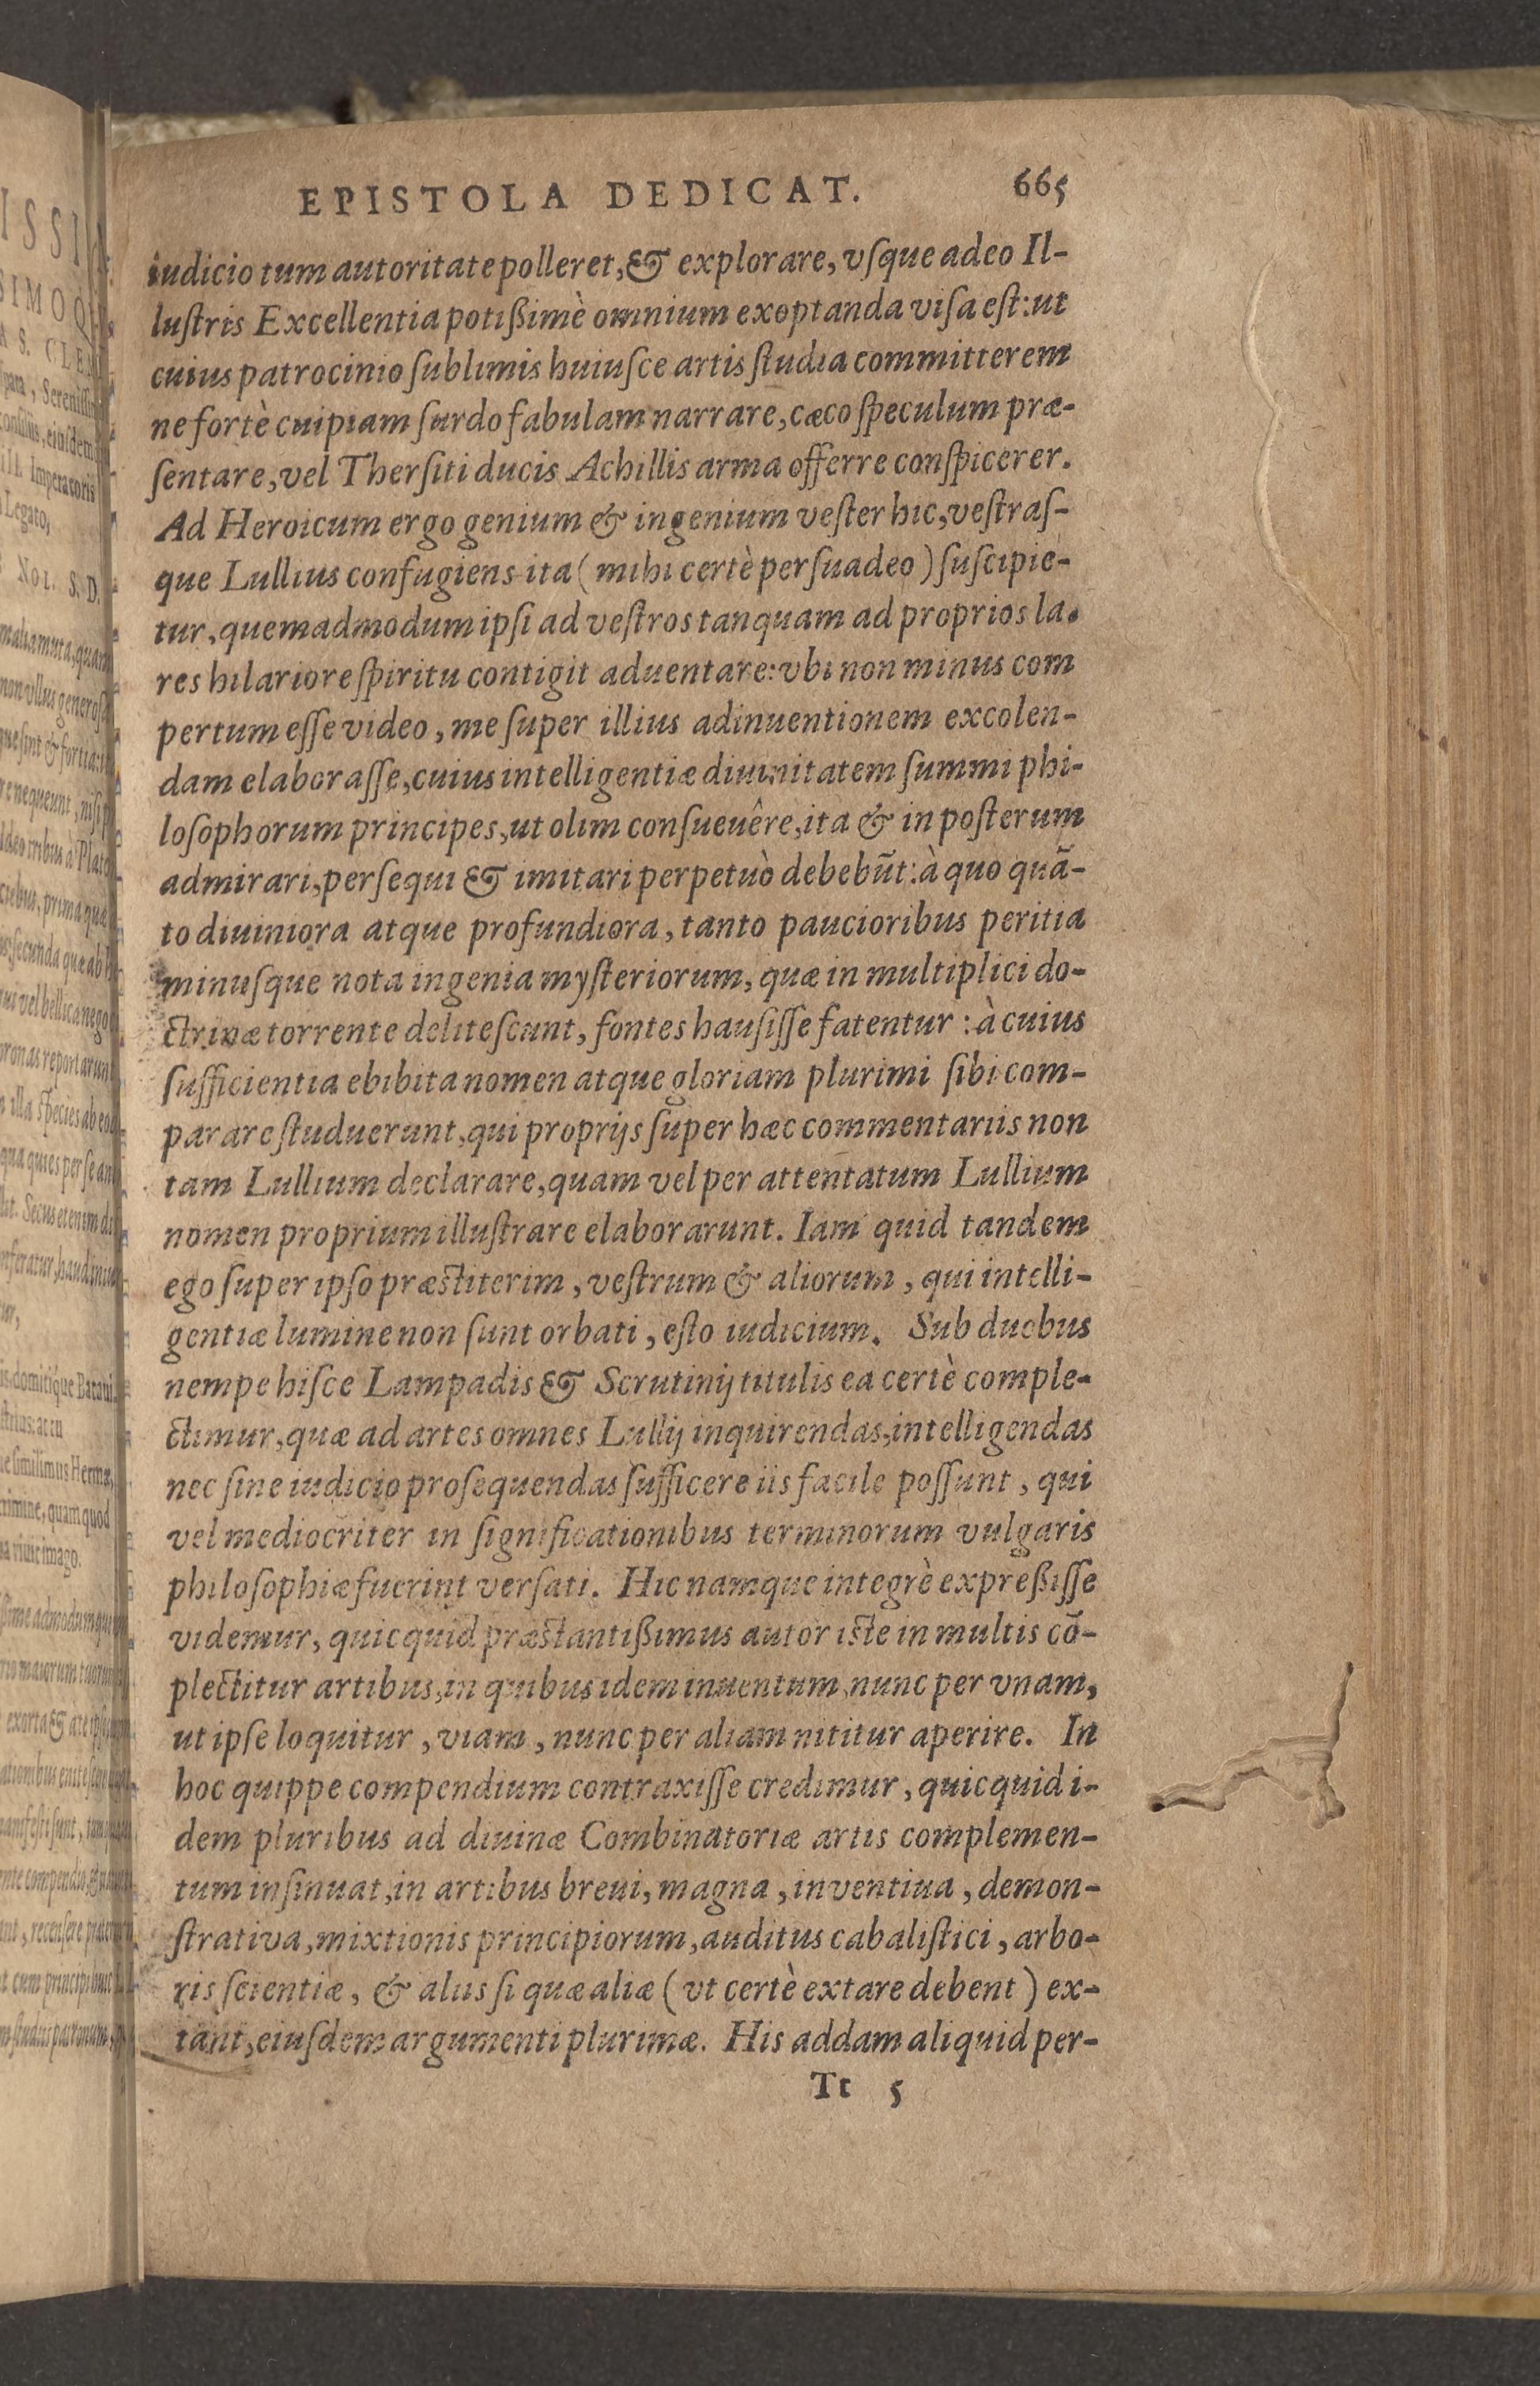 EPISTOLA DEDICAT. 665
iudicio tum autoritate polleret, & explorare, vſque adeo Il-
luſtris Excellentia potißimè omnium exoptanda viſa eſt: ut
cuius patrocinio ſublimis huiuſce artis ſtudia committerem
ne fortè cuipiam ſurdo fabulam narrare, cæco ſpeculum præ-
ſentare, vel Therſiti ducis Achillis arma offerre conſpicerer.
Ad Heroicum ergo genium & ingenium veſter hic, veſtraſ-
que Lullius confugiens ita ( mihi certè perſuadeo ) ſuſcipie-
tur, quemadmodum ipſi ad veſtros tanquam ad proprios la-
res hilariore ſpiritu contigit aduentare: vbi non minus com
pertum eſſe video, me ſuper illius adinuentionem excolen-
dam elaboraſſe, cuius intelligentiæ diuinitatem ſummi phi-
loſophorum principes, ut olim conſueuêre, ita & in poſterum
admirari, perſequi & imitari perpetuò debebũt: à quo quã-
to diuiniora atque profundiora, tanto paucioribus peritia
minuſque nota ingenia myſteriorum, quæ in multiplici do-
ctrinæ torrente deliteſcunt, fontes hauſiſſe fatentur : à cuius
ſufficientia ebibita nomen atque gloriam plurimi ſibi com-
parare ſtuduerunt, qui proprijs ſuper hæc commentariis non
tam Lullium declarare, quam vel per attentatum Lullium
nomen proprium illuſtrare elaborarunt. Iam quid tandem
ego ſuper ipſo præſtiterim, veſtrum & aliorum, qui intelli-
gentiæ lumine non ſunt orbati, eſto iudicium. Sub duobus
nempe hiſce Lampadis & Scrutinij titulis ea certè comple-
ctimur, quæ ad artes omnes Lullij inquirendas, intelligendas
nec ſine iudicio proſequendas ſufficere iis facile poſſunt, qui
vel mediocriter in ſignificationibus terminorum vulgaris
philoſophiæ fuerint verſati. Hic namque integrè expreßiſſe
videmur, quicquid præſtantißimus autor iſte in multis cõ-
plectitur artibus, in quibus idem inuentum, nunc per vnam,
ut ipſe loquitur, viam, nunc per aliam nititur aperire. In
hoc quippe compendium contraxiſſe credimur, quicquid i-
dem pluribus ad diuinæ Combinatoriæ artis complemen-
tum inſinuat, in artibus breui, magna, inventiua, demon-
ſtrativa, mixtionis principiorum, auditus cabaliſtici, arbo-
ris ſcientiæ, & aliis ſi quæ aliæ ( vt certè extare debent ) ex-
tant, eiuſdem argumenti plurimæ. His addam aliquid per-
Tt 5